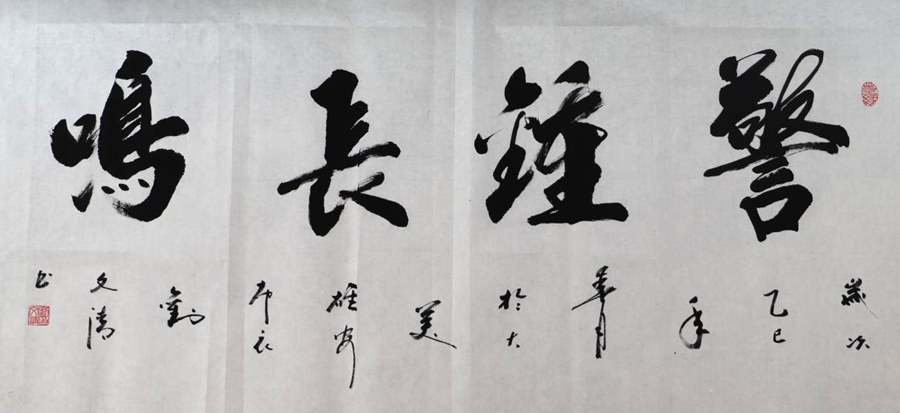 警鍾長鳴
歲次
乙巳
年
月
於大
美
雄安
布衣
劉
文清
书